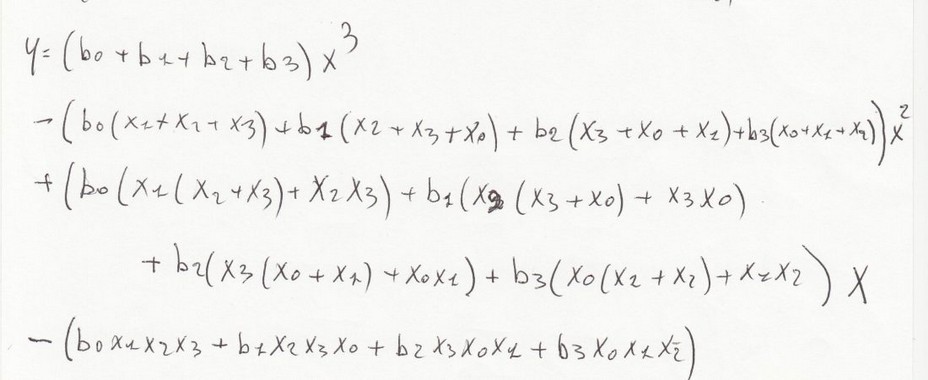 y= (b0 + b1 + b2 + b3) x^3
- (b0(x1+x2+x3) + b1(x2+x3+x0) + b2(x3+x0+x1)+b3(x0+x1+x2))x^2
+ (b0(x1(x2+x3)+x2x3) + b1(x2(x3+x0) + x3x0)
+ b2(x3(x0+x1)+x0x1) + b3(x0(x1+x2)+x1x2)) x
- (b0x1x2x3 + b1x2x3x0 + b2x3x0x1 + b3x0x1x2)